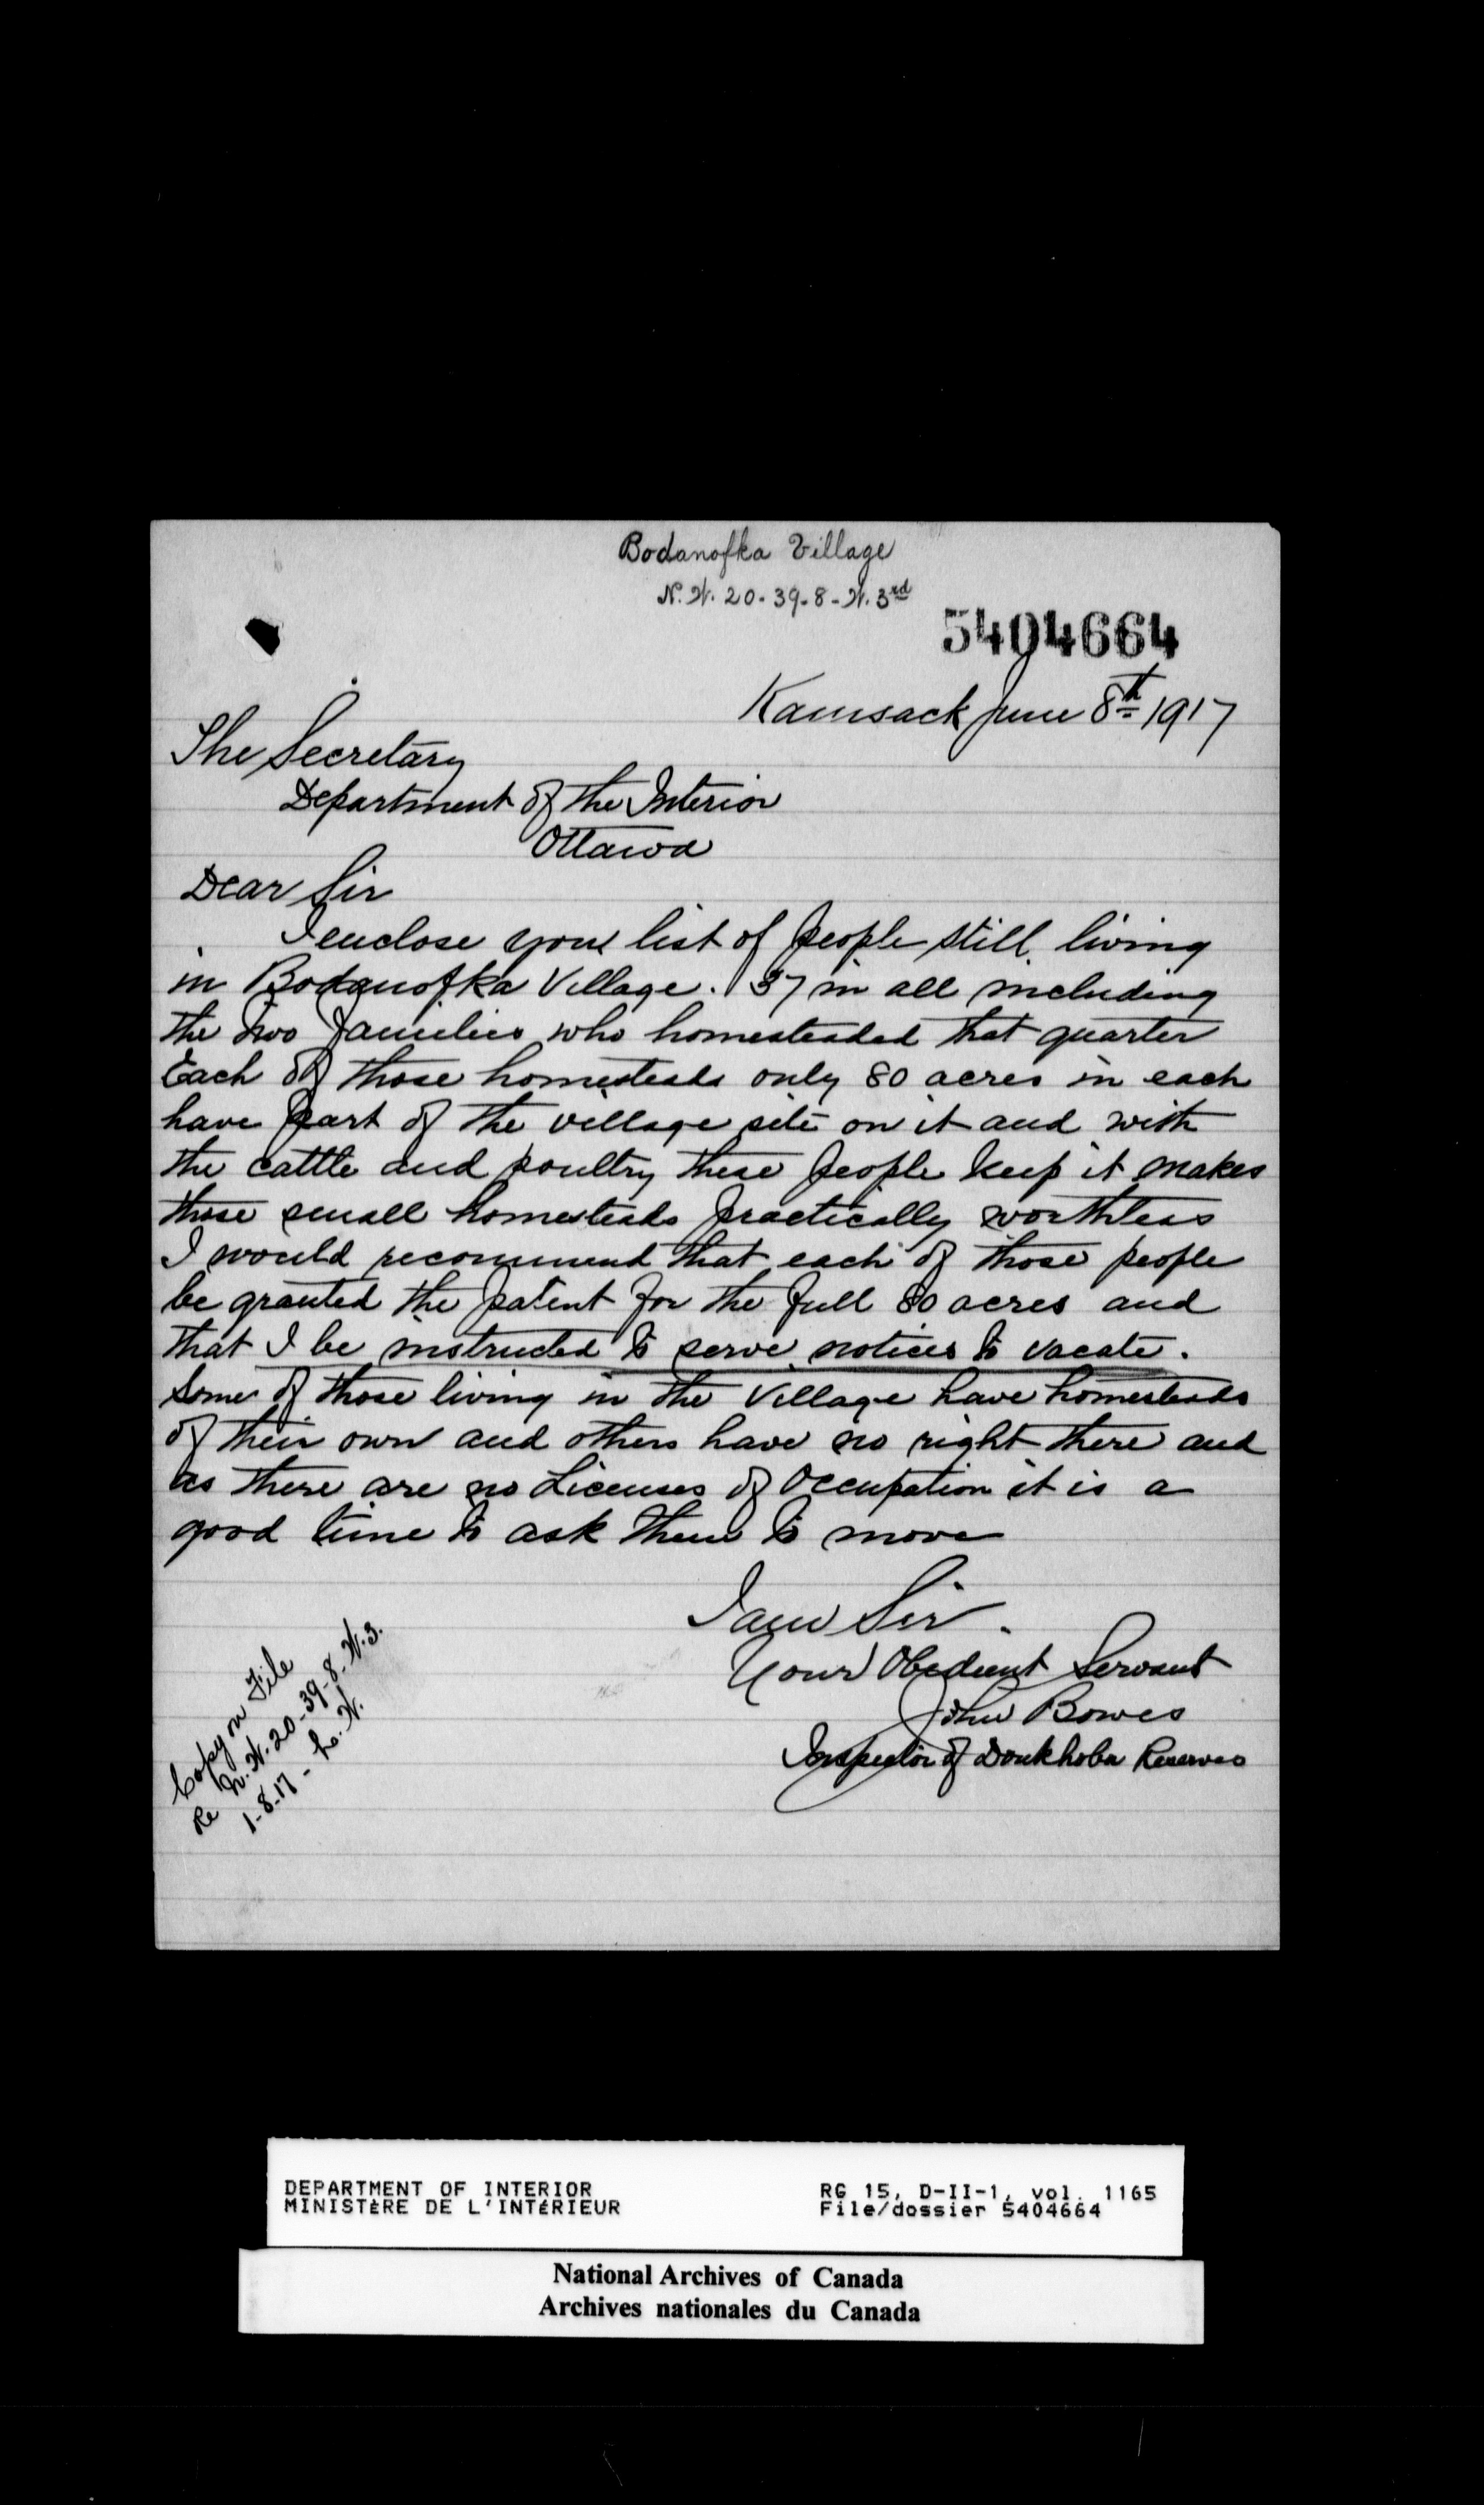 Bodanofka Village
N.W. 20-39-8-W. 3rd
5404664
Kamsack June 8th 1917
The Secretary
Department of the Interior
Ottawa
Dear Sir
I enclose you list of people still living
in Bodanofka Village. 37 in all including
the two families who homesteaded that quarter
Each of those homesteads only 80 acres in each
have part of the village site on it and with
the cattle and poultry these people keep it makes
those small homesteads practically worthless
I would recommend that each of those people
be granted the patent for the full 80 acres and
that I be instructed to serve notices to vacate.
Some of those living in the Village have homesteads
of their own and others have no right there and
as there are no Licenses of Occupation it is a
good time to ask them to move
I am Sir.
Your Obedient Servant
John Bowes
Inspector of Doukhobor Reserves
Copy on File
Re N.W. 20-39-8-W.3.
1-8-17 - L.W.
DEPARTMENT OF INTERIOR RG 15, D-II-1, vol. 1165
MINISTÈRE DE L'INTÉRIEUR File/dossier 5404664
National Archives of Canada
Archives nationales du Canada